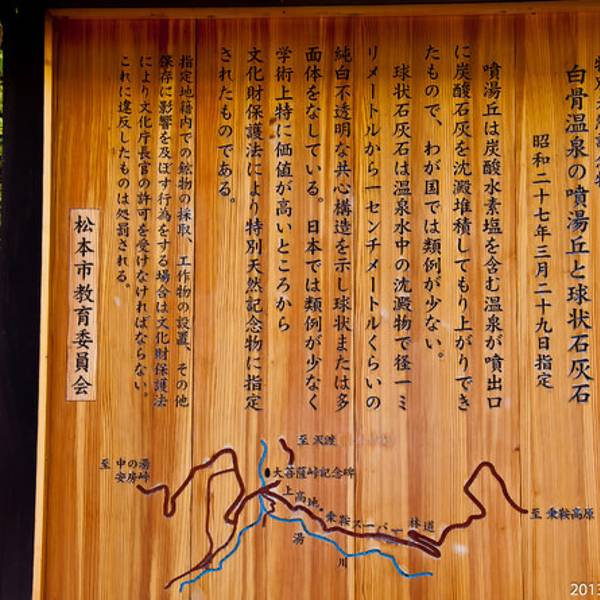 白骨温泉の噴湯丘と球状石灰石
昭和二十七年三月二十九日指定
噴湯丘は炭酸水素塩を含む温泉が噴出口
に炭酸石灰を沈澱堆積してもり上がりでき
たもので、わが国では類例が少ない。
球状石灰石は温泉水中の沈澱物で径一ミ
リメートルから一センチメートルくらいの
純白不透明な共心構造を示し球状または多
面体をなしている。日本では類例が少なく
学術上特に価値が高いところから
文化財保護法により特別天然記念物に指定
されたものである。
指定地籍内での鉱物の採取、工作物の設置、その他
保存に影響を及ぼす行為をする場合は文化財保護法
により文化庁長官の許可を受けなければならない。
これに違反したものは処罰される。
松本市教育委員会
至 沢渡
至 中の湯
安房峠
大菩薩峠記念碑
上高地、乗鞍スーパー林道
湯川
至 乗鞍高原
2013